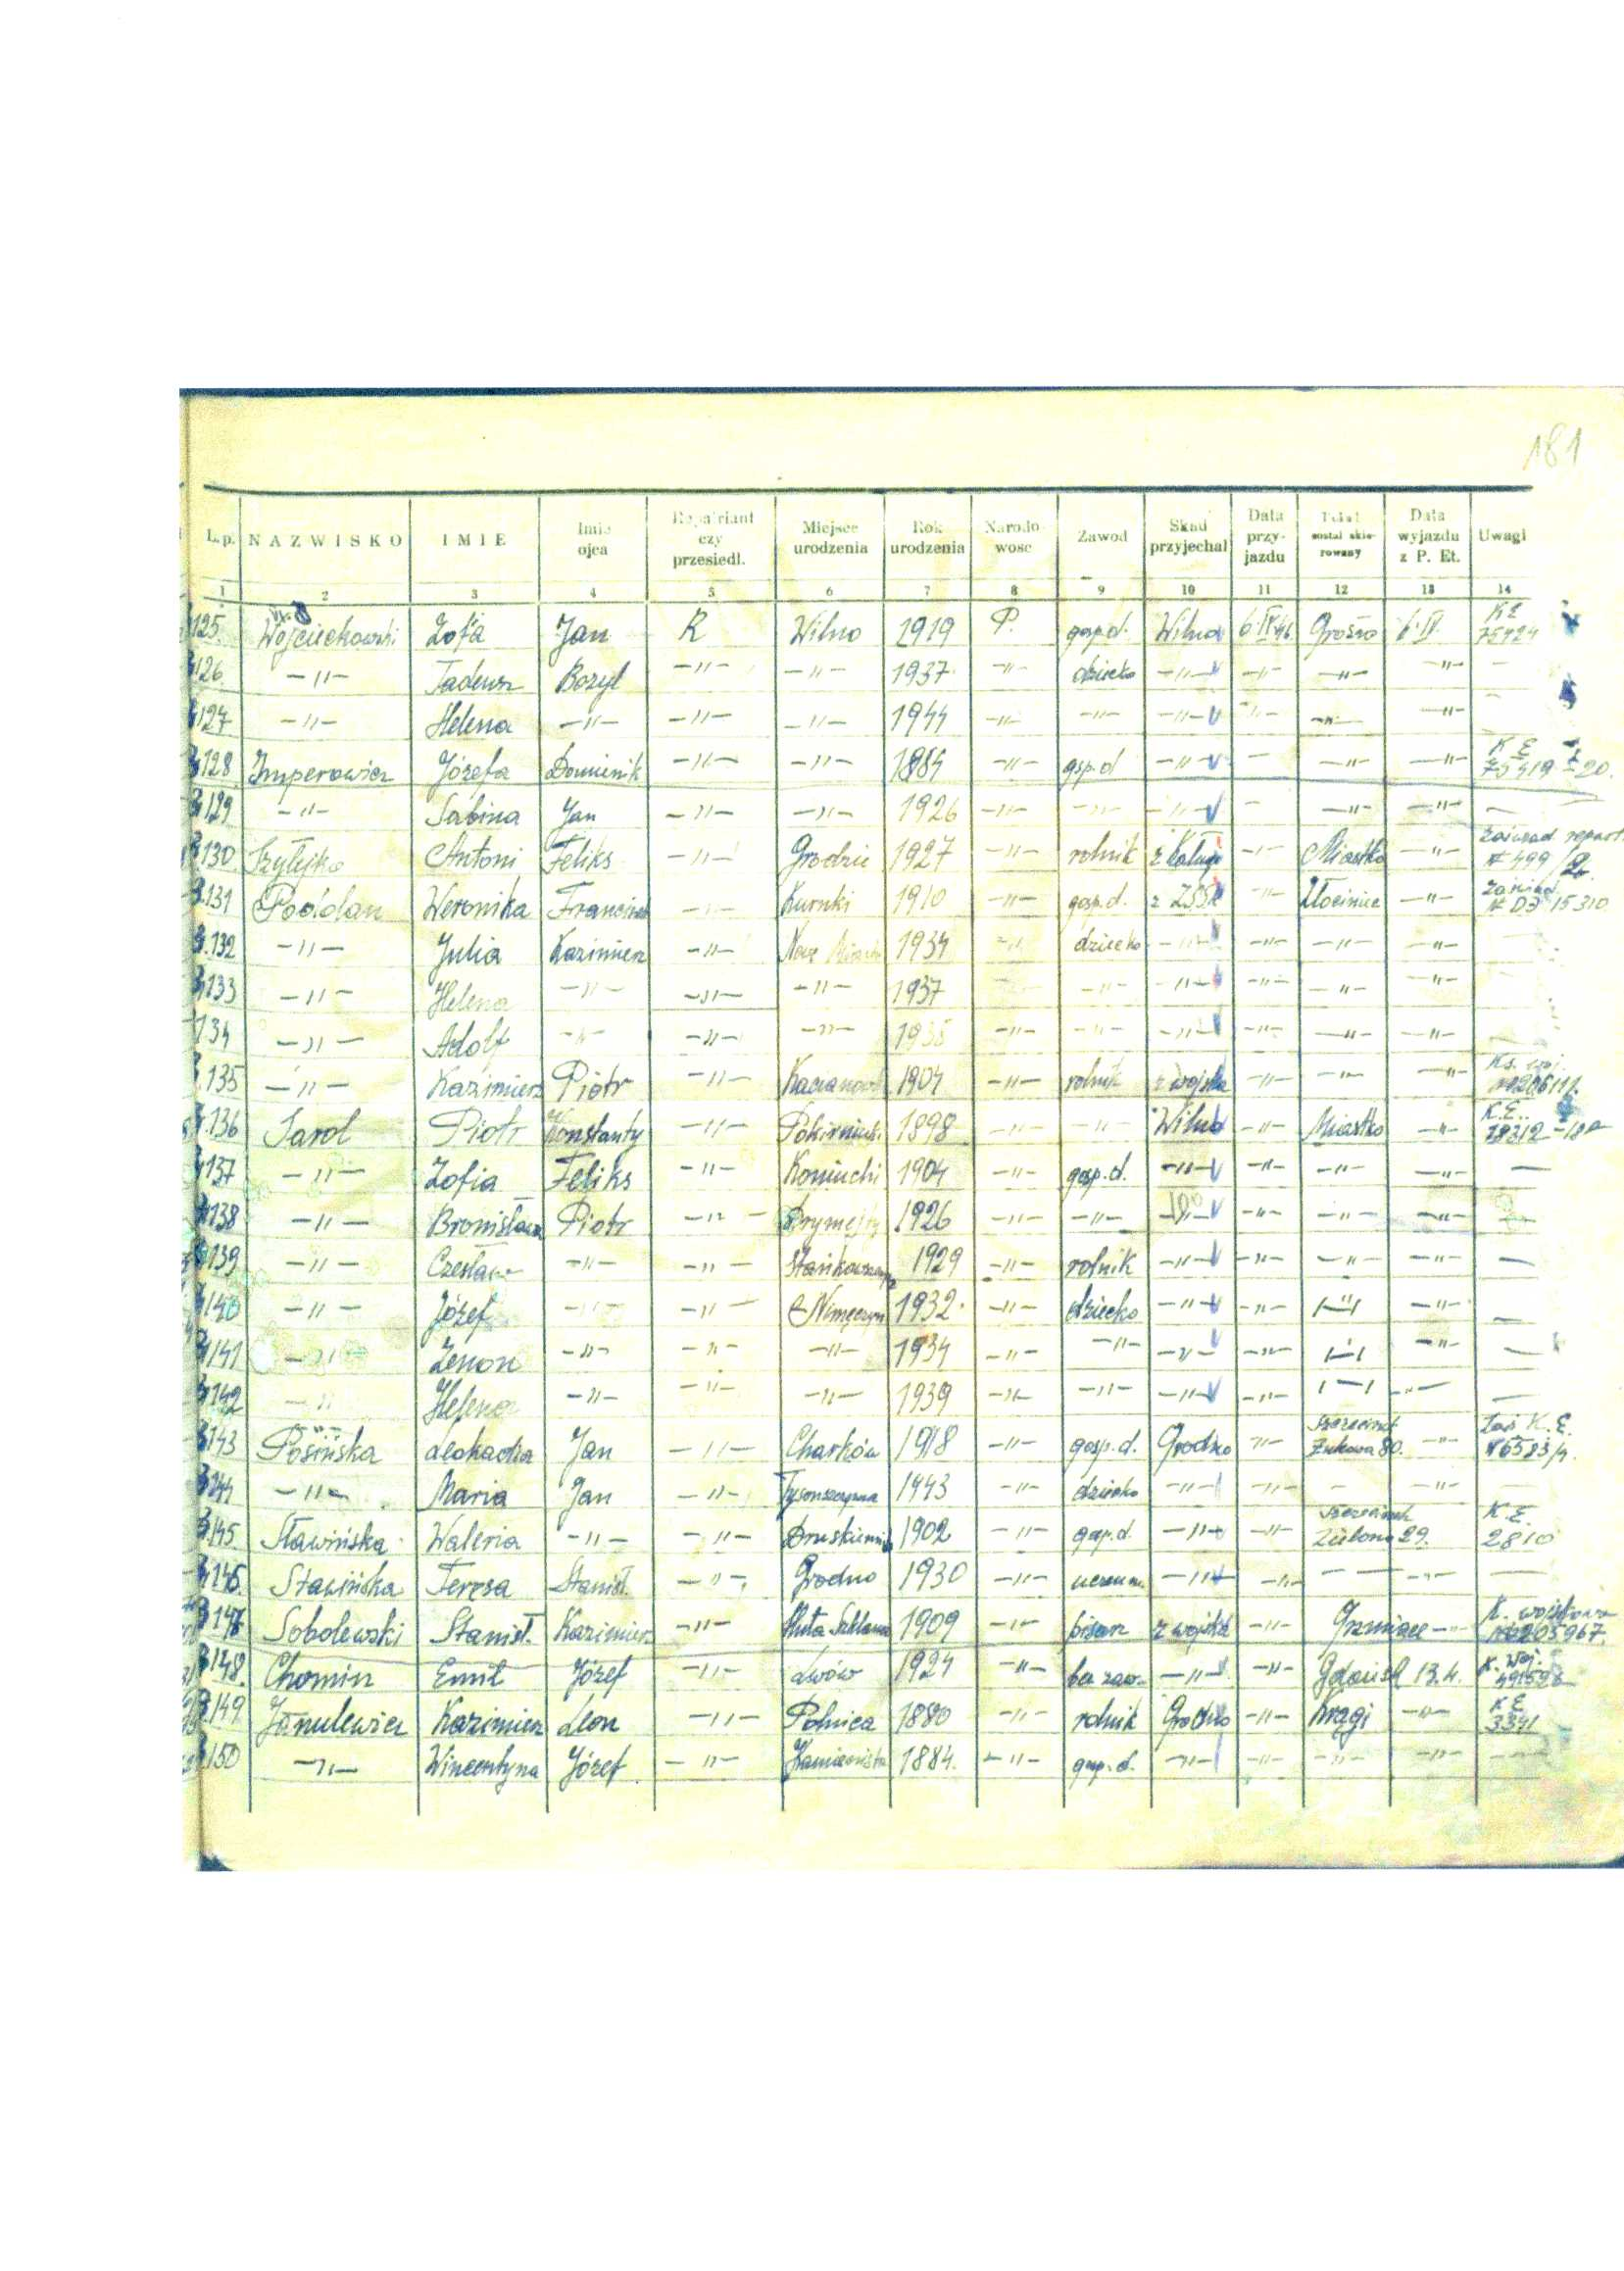 181
L.p. NAZWISKO IMIE Imie ojca Repatriant czy przesiedl. Miejsce urodzenia Rok urodzenia Narodowosc Zawod Skad przyjechal Data przyjazdu został skierowany Data wyjazdu z P. Et. Uwagi
1 2 3 4 5 6 7 8 9 10 11 12 13 14
125. Wojciechowski Zofia Jan R Wilno 1919 P. gosp.d. Wilno 6.IV.46 6.IV K E 75424
126. -"- Tadeusz Bozyl -"- -"- 1937 -"- dziecko -"- -"- -"- -"- -
127 -"- Helena -"- -"- -"- 1944 -"- -"- -"- -"- -"- -"- -
128 Imperowicz Józefa Dominik -"- -"- 1884 -"- gsp.d -"- - -"- -"- K E 75419-20.
129 -"- Sabina Jan -"- -"- 1926 -"- -"- -"- - -"- -"- -
130 Antoni Feliks -"- Grodzie 1927 -"- rolnik z Kaługi -"- Miastko -"- № 499
131 Weronika Franciszek -"- Kurnki 1910 -"- gosp.d. z ZSSR -"- Złocieniec -"- 15310
132 -"- Julia Kazimierz -"- 1934 -"- dziecko -"- -"- -"- -"-
133 -"- Helena -"- -"- -"- 1937 -"- -"- -"- -"- -"-
134 -"- Adolf -"- -"- -"- 1935 -"- -"- -"- -"- -"- -"-
135 -"- Kazimierz Piotr -"- 1904 -"- rolnik z wojska -"- -"- -"- Ks. woj.
136 Sarol Piotr Konstanty -"- 1898 -"- -"- Wilno -"- Miastko -"- K.E. 78312
137 -"- Zofia Feliks -"- Koniuchi 1904 -"- gosp.d. -"- -"- -"- -"- -
138 -"- Bronisława Piotr -"- 1926 -"- -"- -"- -"- -"- -"-
139 -"- Czesław -"- -"- 1929 -"- rolnik -"- -"- -"- -"- -
140 -"- Józef -"- -"- 1932. -"- dziecko -"- -"- -"- -"- -
141 -"- Zenon -"- -"- -"- 1934 -"- -"- -"- -"- -"- -"- -
142 -"- Helena -"- -"- -"- 1939 -"- -"- -"- -"- -"- -"- -
143 Posińska Leokadia Jan -"- Charków 1918 -"- gosp.d. Grodno -"- Szczecinek Żukowa 80. -"- Zaś. K.E.
144 -"- Maria Jan -"- 1943 -"- dziecko -"- -"- - -"- -"-
145 Sławińska Waleria -"- -"- Druskieniki 1902 -"- gosp.d. -"- -"- Szczecinek Zielona 29. K.E. 2810
146. Sławińska Teresa Stanisł. -"- Grodno 1930 -"- -"- -"- - -"- -
147 Sobolewski Stanisł. Kazimierz -"- Huta Szklana 1909 -"- pisarz z wojska -"- Grzmiące -"- K. wojskowa 205967.
148. Chomin Emil Józef -"- Lwów 1924 -"- bez zaw. -"- -"- Gdańsk 13.4. K. woj.
149 Janulewicz Kazimierz Leon -"- Polnica 1880 -"- rolnik Grodno -"- Krągi -"- K E 3341
150 -"- Wincentyna Józef -"- 1884. -"- gosp.d. -"- -"- -"- -"- -